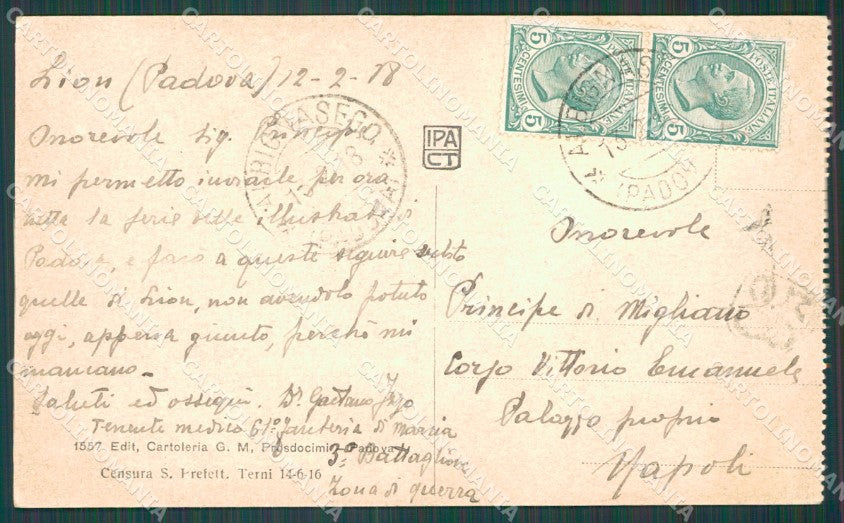 Lion (Padova) 12-2-18
Onorevole Sig. Principe,
mi permetto inviarle per ora
tutta la serie delle illustrate di
Padova, e farò a queste seguire subito
quelle di Lion, non avendolo potuto
oggi, appena giunto, perchè mi
mancano -
Saluti ed ossequi. Dr Gaetano
Tenente medico 61° fanteria di marcia
3° Battaglione
Zona di guerra
1557 Edit, Cartoleria G. M. Prosdocimi - Padova
Censura S. Prefett. Terni 14-6-16
IPA
CT
ALBIGNASEGO
(PADOVA)
5
CENTESIMI
POSTE ITALIANE
5
CENTESIMI
ALBIGNASEGO
(PADOVA)
Onorevole
Principe di Migliano
Corso Vittorio Emanuele
Palazzo proprio
Napoli
CARTOLINOMANIA